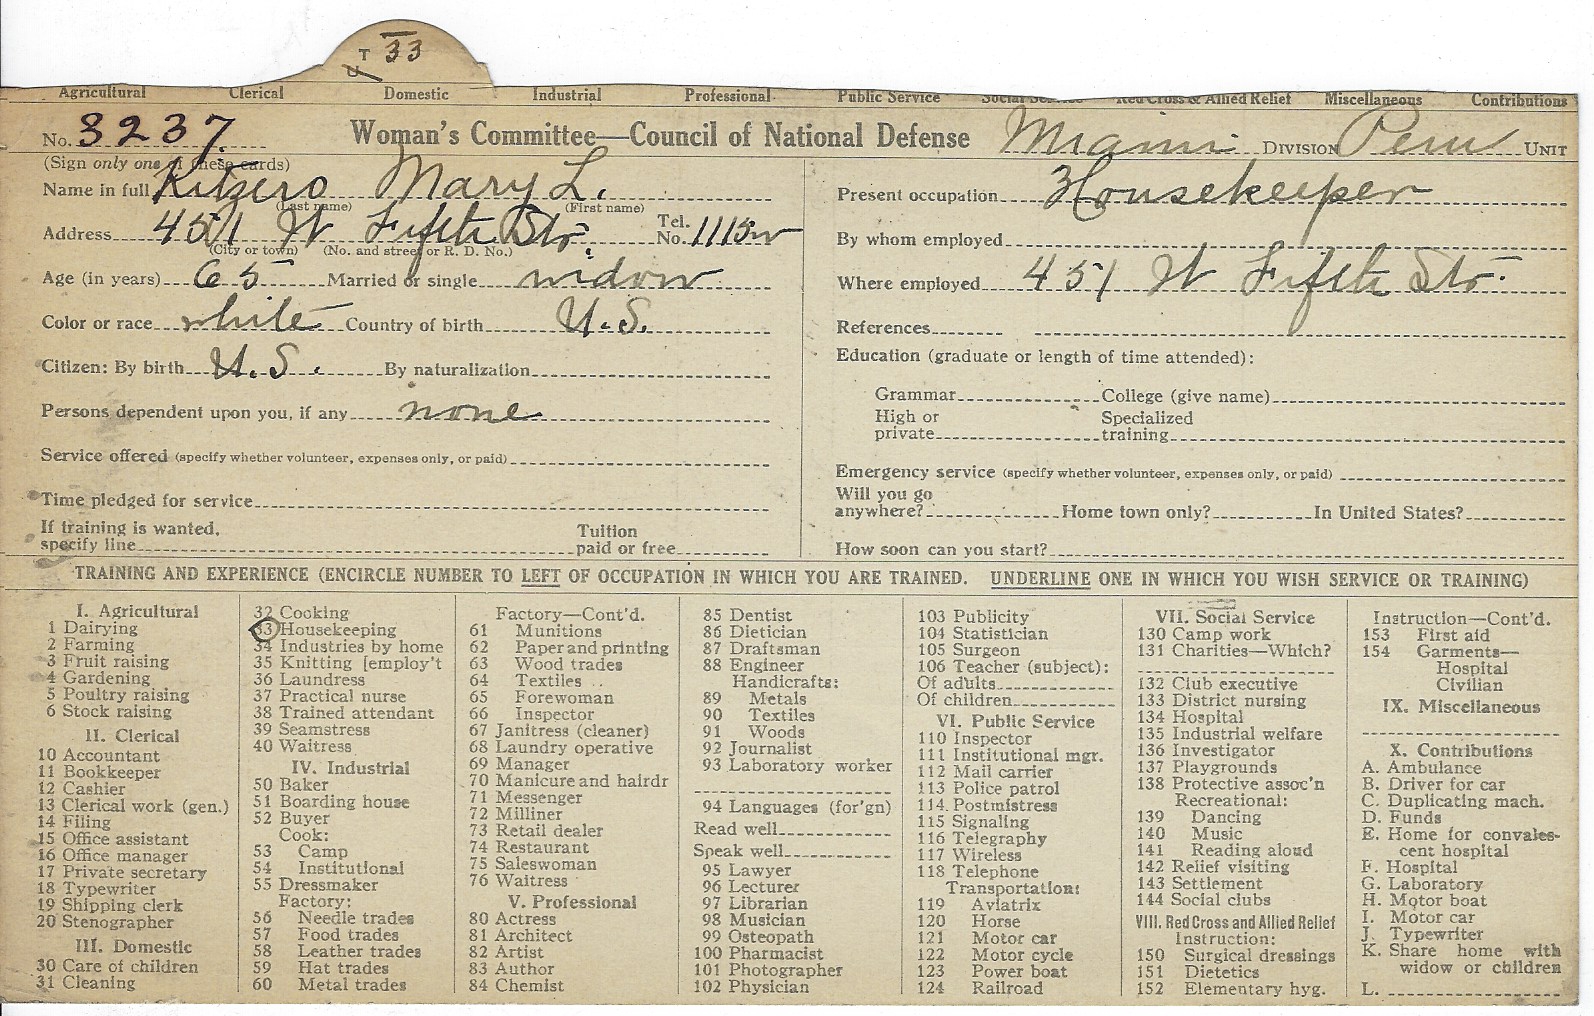 T 33
U
Agricultural Clerical Domestic Industrial Professional Public Service Social Service Red Cross & Allied Relief Miscellaneous Contributions
No. 3237. Woman's Committee—Council of National Defense Miami DIVISION Peru UNIT
(Sign only one of these cards)
Name in full Mary L.
(Last name) (First name)
Address 451 W Fifth Str. Tel. No. 1115w
(City or town) (No. and street or R. D. No.)
Age (in years) 65 Married or single widow
Color or race white Country of birth U.S.
Citizen: By birth U.S. By naturalization
Persons dependent upon you, if any none
Service offered (specify whether volunteer, expenses only, or paid)
Time pledged for service
If training is wanted, specify line Tuition paid or free
Present occupation Housekeeper
By whom employed
Where employed 451 W Fifth Str.
References
Education (graduate or length of time attended):
Grammar College (give name)
High or private Specialized training
Emergency service (specify whether volunteer, expenses only, or paid)
Will you go anywhere? Home town only? In United States?
How soon can you start?
TRAINING AND EXPERIENCE (ENCIRCLE NUMBER TO LEFT OF OCCUPATION IN WHICH YOU ARE TRAINED. UNDERLINE ONE IN WHICH YOU WISH SERVICE OR TRAINING)
I. Agricultural
1 Dairying
2 Farming
3 Fruit raising
4 Gardening
5 Poultry raising
6 Stock raising
II. Clerical
10 Accountant
11 Bookkeeper
12 Cashier
13 Clerical work (gen.)
14 Filing
15 Office assistant
16 Office manager
17 Private secretary
18 Typewriter
19 Shipping clerk
20 Stenographer
III. Domestic
30 Care of children
31 Cleaning
32 Cooking
33 Housekeeping
34 Industries by home
35 Knitting [employ't
36 Laundress
37 Practical nurse
38 Trained attendant
39 Seamstress
40 Waitress
IV. Industrial
50 Baker
51 Boarding house
52 Buyer
Cook:
53 Camp
54 Institutional
55 Dressmaker
Factory:
56 Needle trades
57 Food trades
58 Leather trades
59 Hat trades
60 Metal trades
Factory—Cont'd.
61 Munitions
62 Paper and printing
63 Wood trades
64 Textiles
65 Forewoman
66 Inspector
67 Janitress (cleaner)
68 Laundry operative
69 Manager
70 Manicure and hairdr
71 Messenger
72 Milliner
73 Retail dealer
74 Restaurant
75 Saleswoman
76 Waitress
V. Professional
80 Actress
81 Architect
82 Artist
83 Author
84 Chemist
85 Dentist
86 Dietician
87 Draftsman
88 Engineer
Handicrafts:
89 Metals
90 Textiles
91 Woods
92 Journalist
93 Laboratory worker
94 Languages (for'gn)
Read well
Speak well
95 Lawyer
96 Lecturer
97 Librarian
98 Musician
99 Osteopath
100 Pharmacist
101 Photographer
102 Physician
103 Publicity
104 Statistician
105 Surgeon
106 Teacher (subject):
Of adults
Of children
VI. Public Service
110 Inspector
111 Institutional mgr.
112 Mail carrier
113 Police patrol
114 Postmistress
115 Signaling
116 Telegraphy
117 Wireless
118 Telephone
Transportation:
119 Aviatrix
120 Horse
121 Motor car
122 Motor cycle
123 Power boat
124 Railroad
VII. Social Service
130 Camp work
131 Charities—Which?
132 Club executive
133 District nursing
134 Hospital
135 Industrial welfare
136 Investigator
137 Playgrounds
138 Protective assoc'n
Recreational:
139 Dancing
140 Music
141 Reading aloud
142 Relief visiting
143 Settlement
144 Social clubs
VIII. Red Cross and Allied Relief
Instruction:
150 Surgical dressings
151 Dietetics
152 Elementary hyg.
Instruction—Cont'd.
153 First aid
154 Garments—
Hospital
Civilian
IX. Miscellaneous
X. Contributions
A. Ambulance
B. Driver for car
C. Duplicating mach.
D. Funds
E. Home for convales-
cent hospital
F. Hospital
G. Laboratory
H. Motor boat
I. Motor car
J. Typewriter
K. Share home with
widow or children
L.